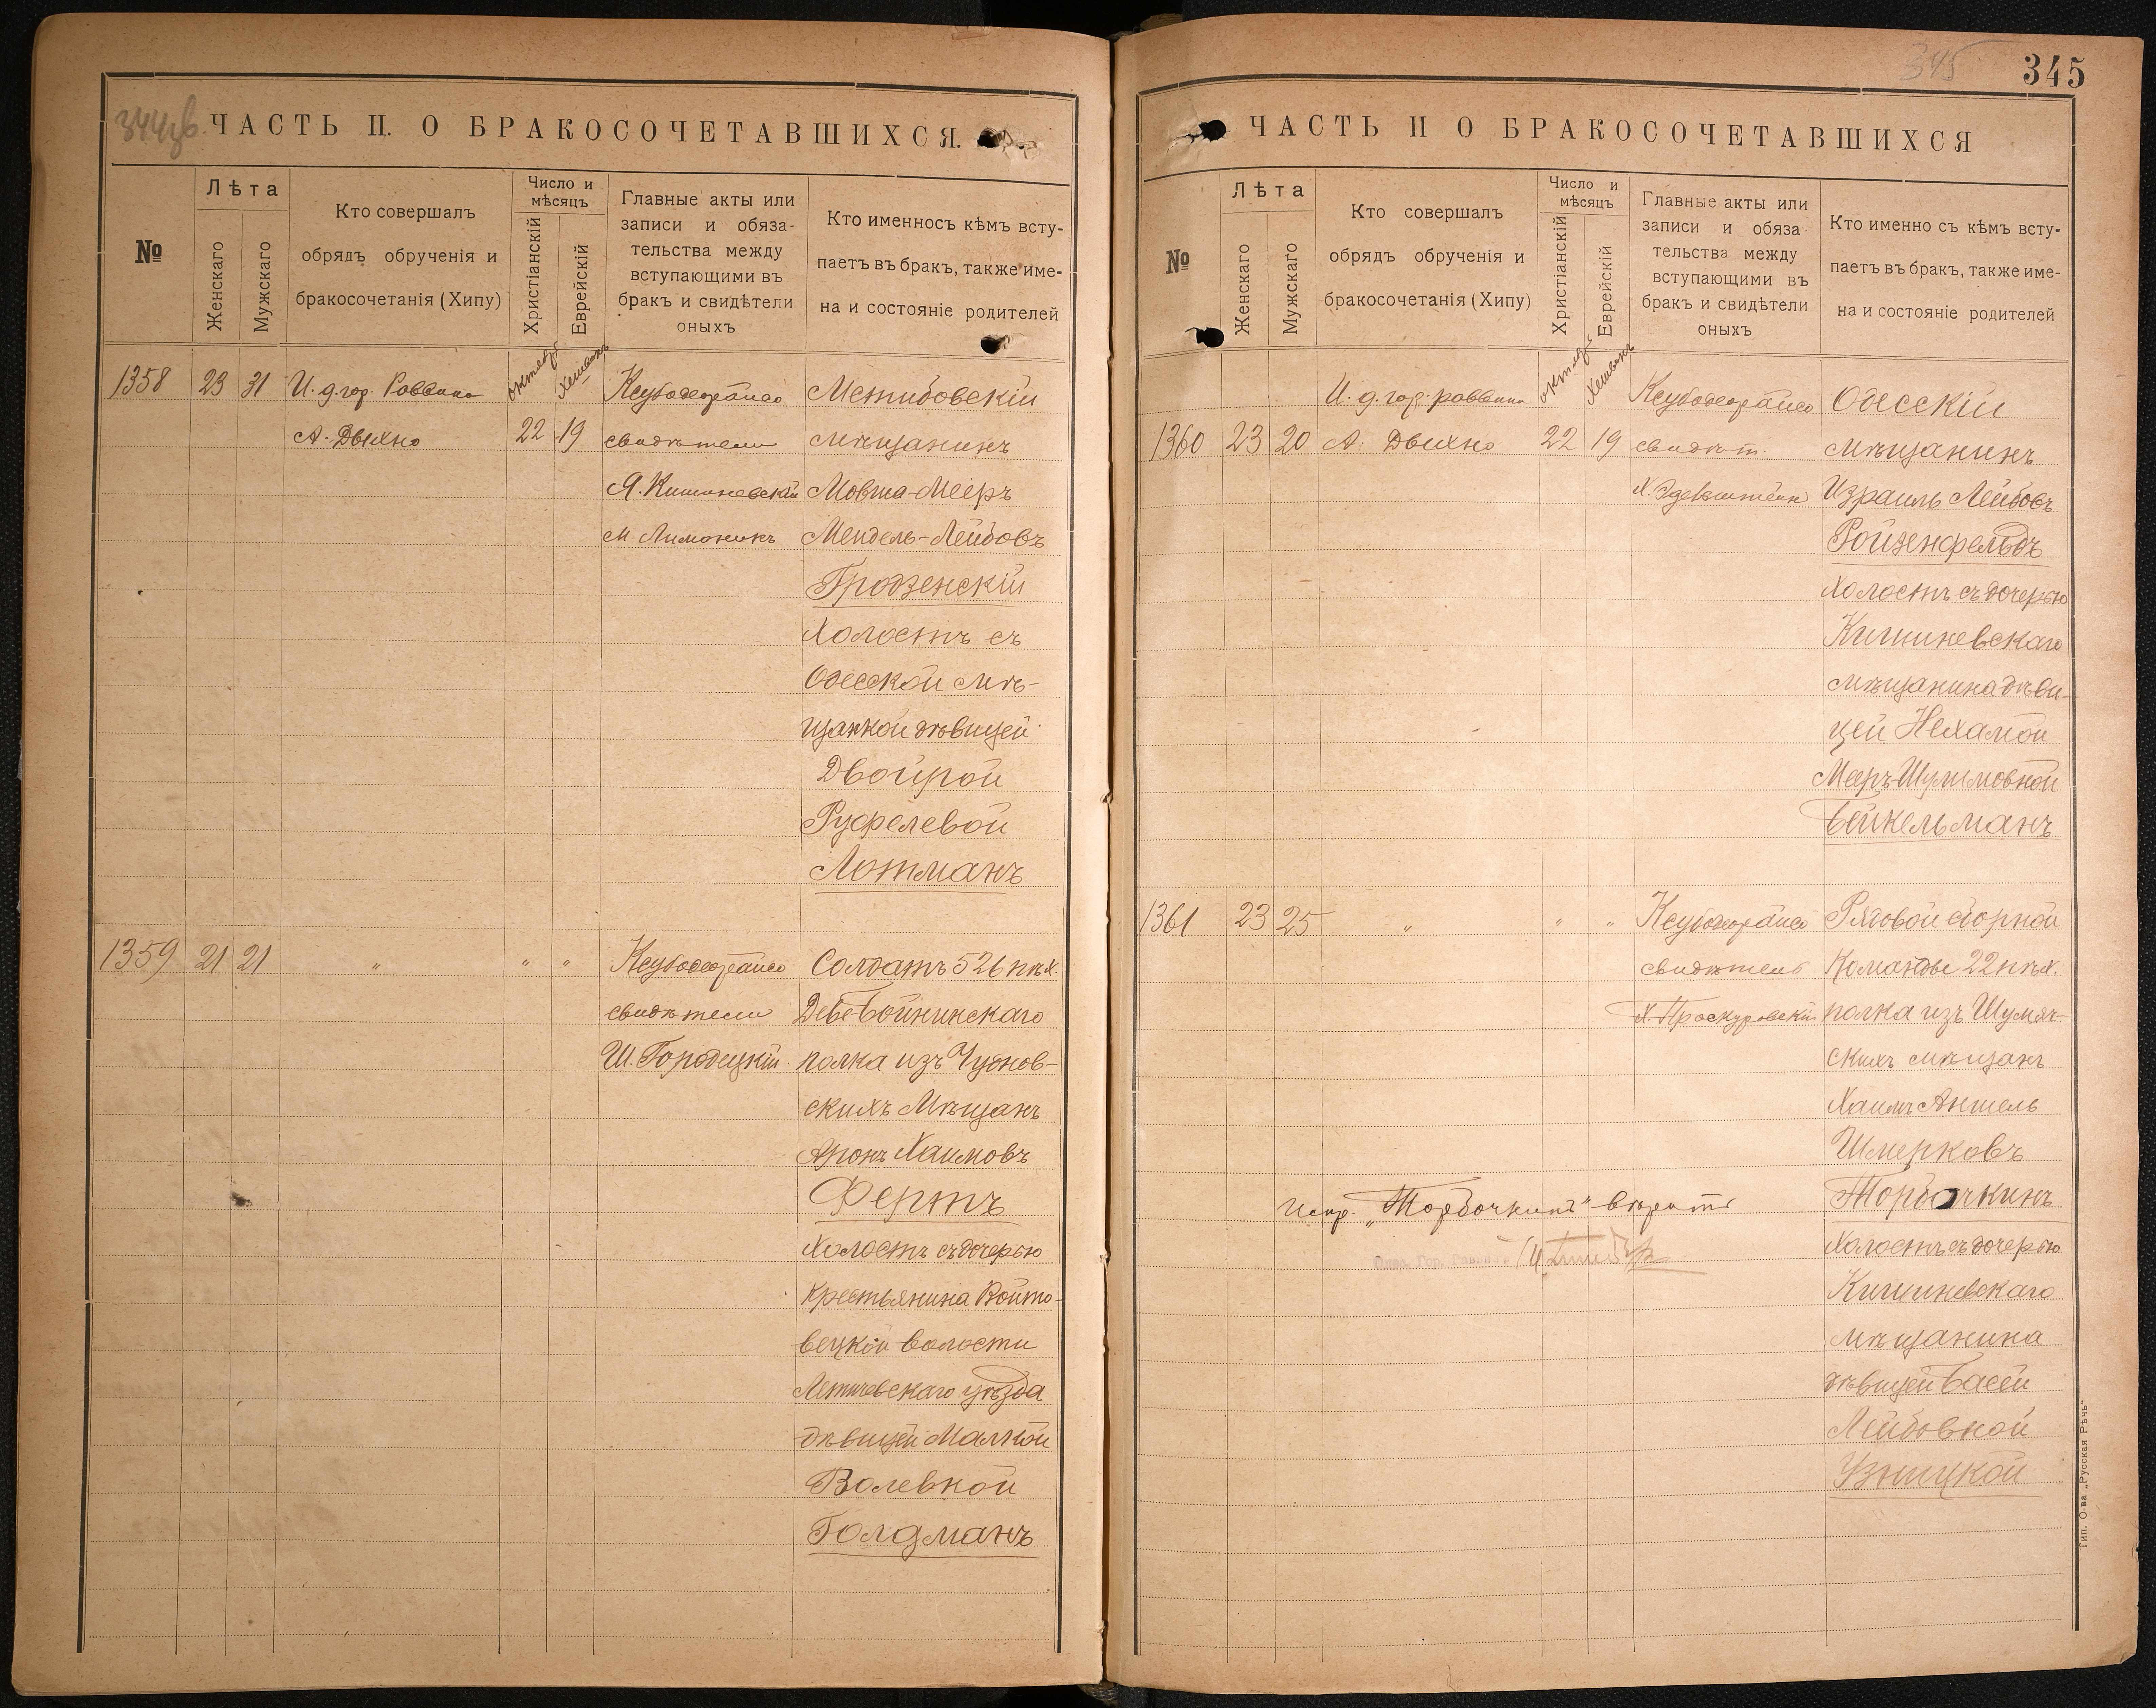 344 об.
ЧАСТЬ II. О БРАКОСОЧЕТАВШИХСЯ.
№
Лѣта
Женскаго
Мужскаго
Кто совершалъ
обрядъ обрученія и
бракосочетанія (Хипу)
Число и
мѣсяцъ
Христіанскій
Еврейскій
Главные акты или
записи и обяза-
тельства между
вступающими въ
бракъ и свидѣтели
оныхъ
Кто именносъ кѣмъ всту-
паетъ въ бракъ, также име-
на и состояніе родителей
1358 23 31 И. д. гор. Раввина
А. Двихно
октябр
22
Хешванъ
19
свидѣтели
Я. Кишиневскій
М Лимоникъ
Межибовскій
мѣщанинъ
Мовша-Мееръ
Мендель-Лейбовъ
Гродзенскій
Холостъ съ
Одесской мѣ-
щанкой дѣвицей
Двойрой
Руфелевой
Лотманъ
1359 21 21 " " "
свидѣтели
Ш. Городецкій
Солдатъ 526 пѣх.
полка изъ Чуднов-
скихъ Мѣщанъ
Аронъ Хаимовъ
Фертъ
Холостъ съ дочерью
Крестьянина Войто-
вецкой волости
Летичевскаго уѣзда
дѣвицей Малкой
Волевной
Голдманъ
345
345
ЧАСТЬ II О БРАКОСОЧЕТАВШИХСЯ
№
Лѣта
Женскаго
Мужскаго
Кто совершалъ
обрядъ обрученія и
бракосочетанія (Хипу)
Число и
мѣсяцъ
Христіанскій
Еврейскій
Главные акты или
записи и обяза-
тельства между
вступающими въ
бракъ и свидѣтели
оныхъ
Кто именно съ кѣмъ всту-
паетъ въ бракъ, также име-
на и состояніе родителей
И. д. гор. раввина
1360 23 20 А. Двихно
октябр
22
Хешванъ
19
свидѣт.
Х. Эдельштейн
Одесскій
мѣщанинъ
Израиль Лейбовъ
Ройзенфельдъ
Холостъ съ дочерью
Кишиневскаго
мѣщанина дѣви-
цей Нехамой
Мееръ-Шулимовной
Вейкельманъ
1361 23 25 " " "
свидѣтель
Х. Проскуровскій
Рядовой сборной
Команды 22 пѣх.
полка изъ Шумяч-
скихъ мѣщанъ
Хаимъ Аншель
Шмерковъ
Торбочкинъ
Холостъ съ дочерью
Кишиневскаго
мѣщанина
дѣвицей Басей
Лейбовной
Узницкой
Испр. „Торбочкинъ" вѣрить
Тип. О-ва „Русская Рѣчь"